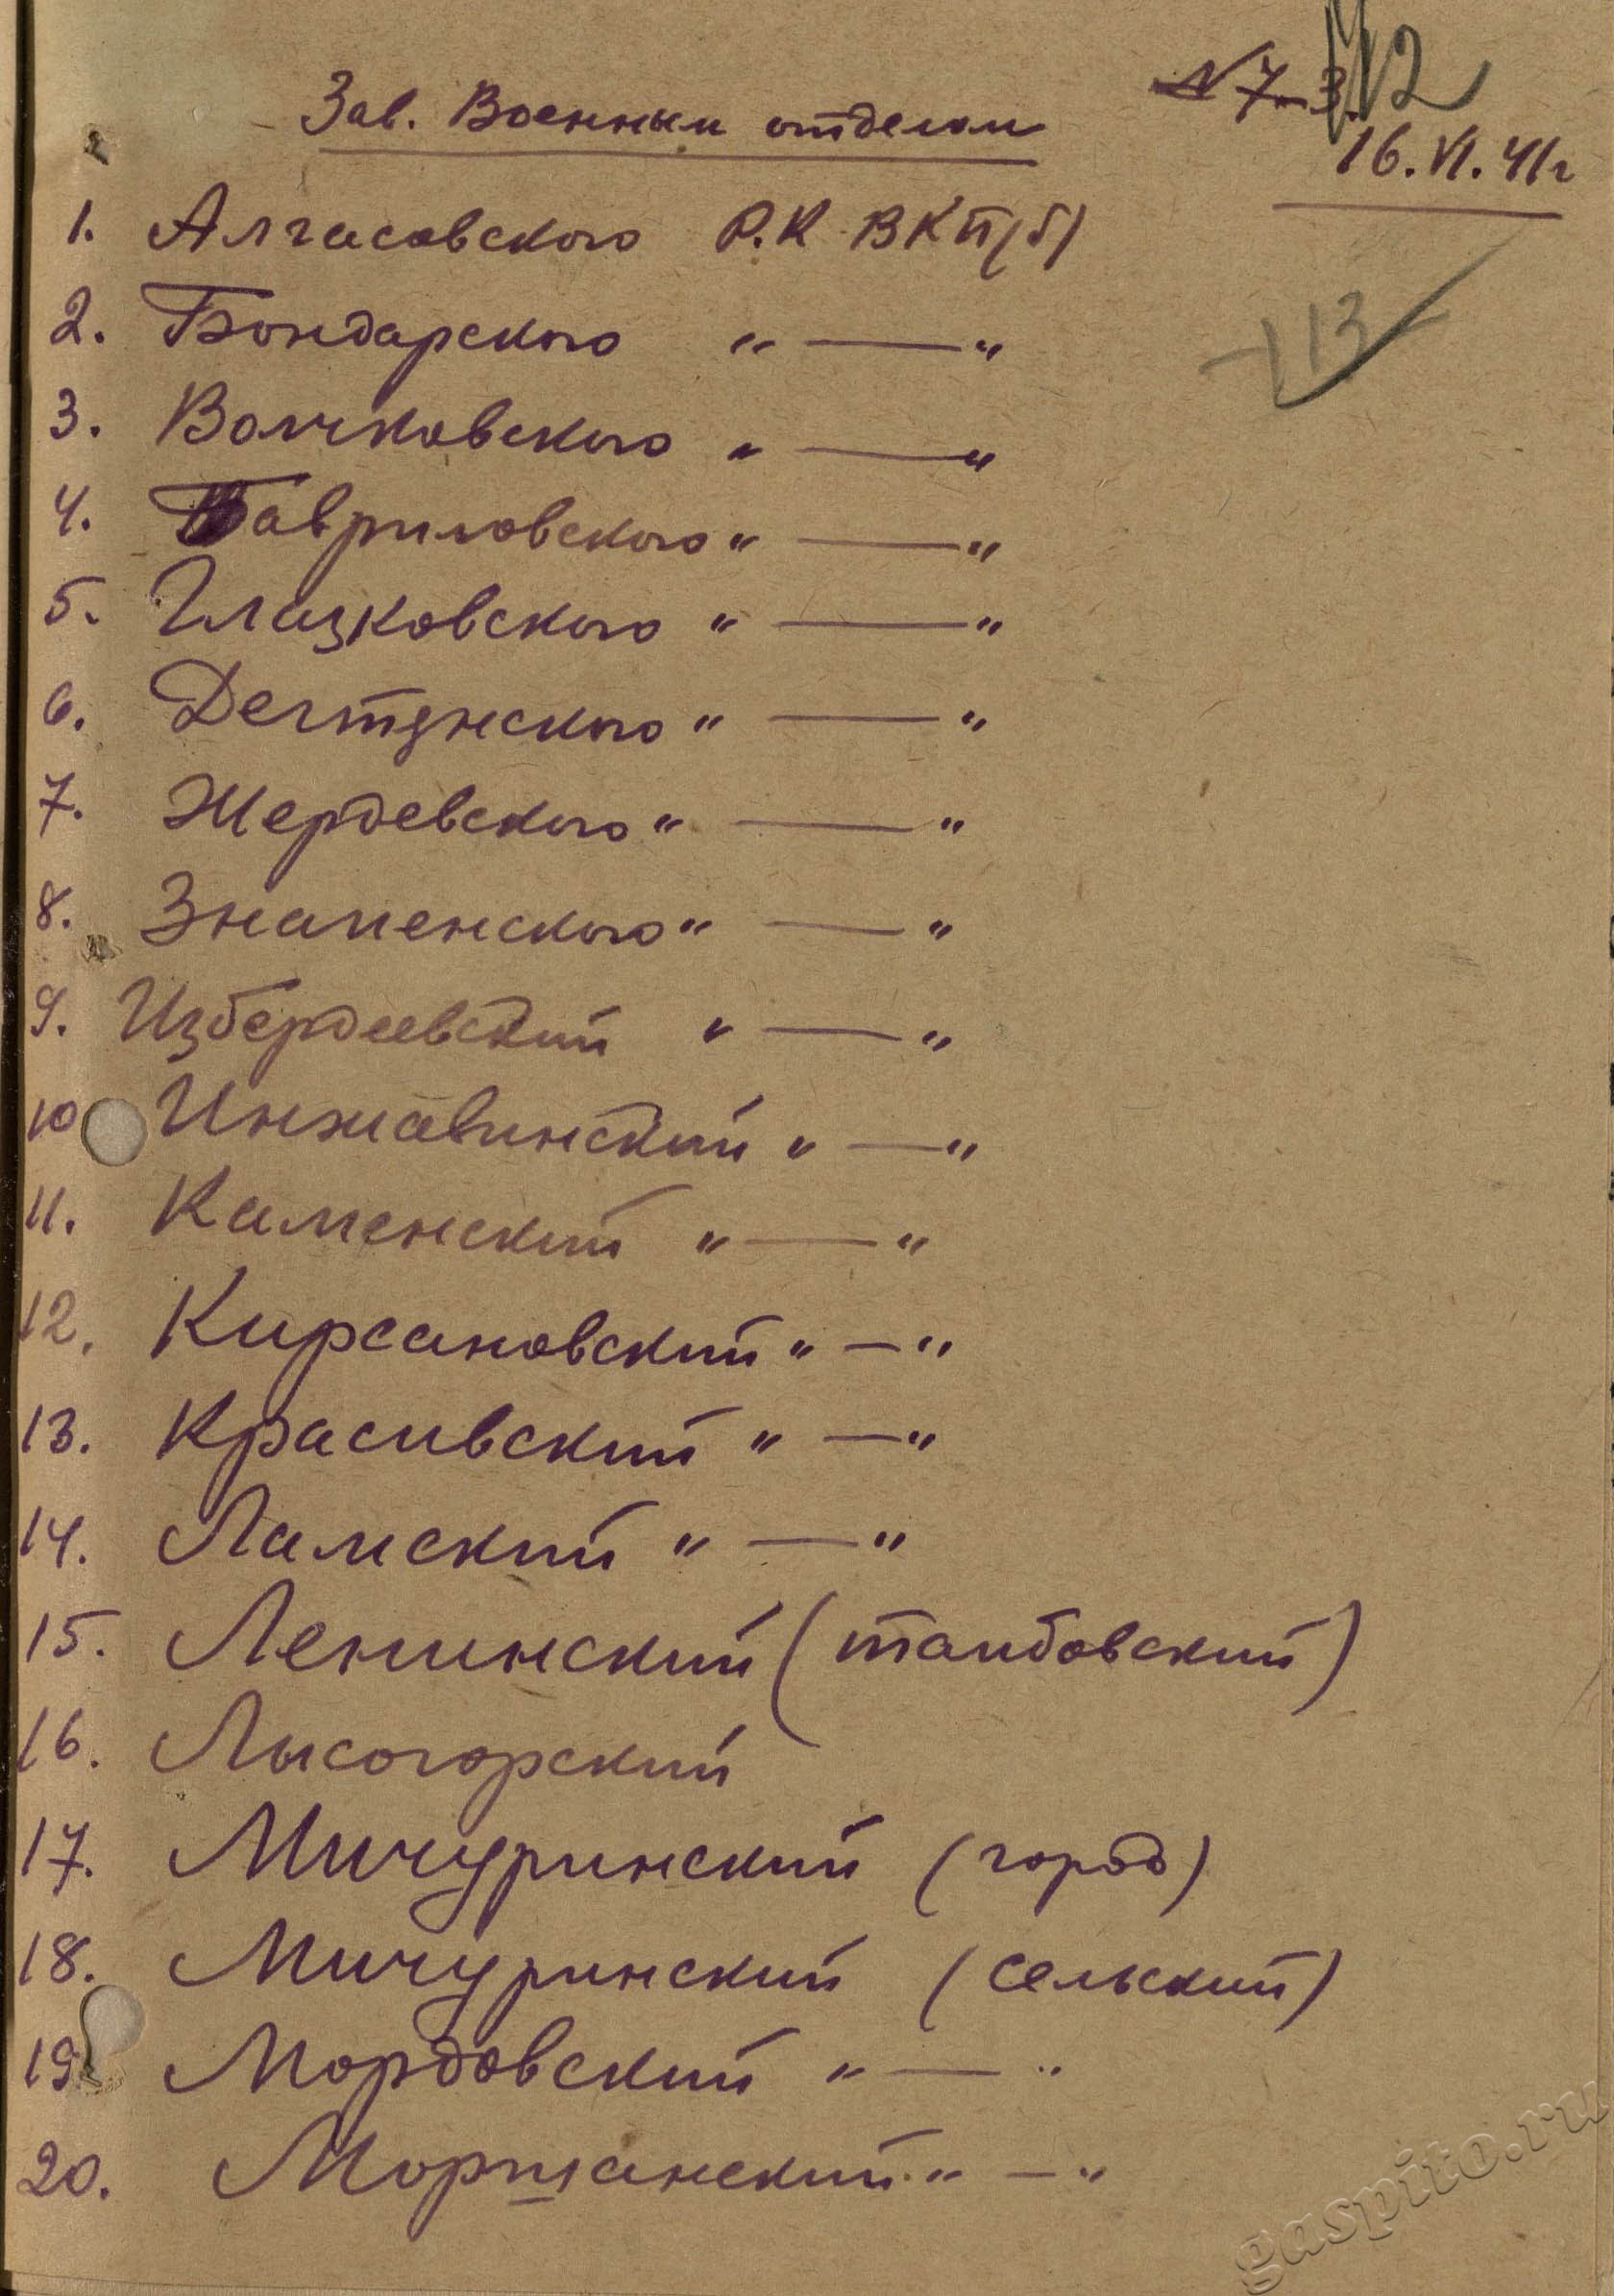 12
16.VI.41г
Зав. Военным отделом
113
1. Алгасовского Р.К ВКП(б)
2. Бондарского " — "
3. Волчковского " — "
4. Гавриловского " — "
5. Глазковского " — "
6. Дегтянского " — "
7. Жердевского " — "
8. Знаменского " — "
9. Избердеевский " — "
10 Инжавинский " — "
11. Каменский " — "
12. Кирсановский " — "
13. Красивский " — "
14. Ламский " — "
15. Ленинский (тамбовский)
16. Лысогорский
17. Мичуринский (город)
18. Мичуринский (сельский)
19 Мордовский " — "
20. Моршанский " — "
gaspito.ru